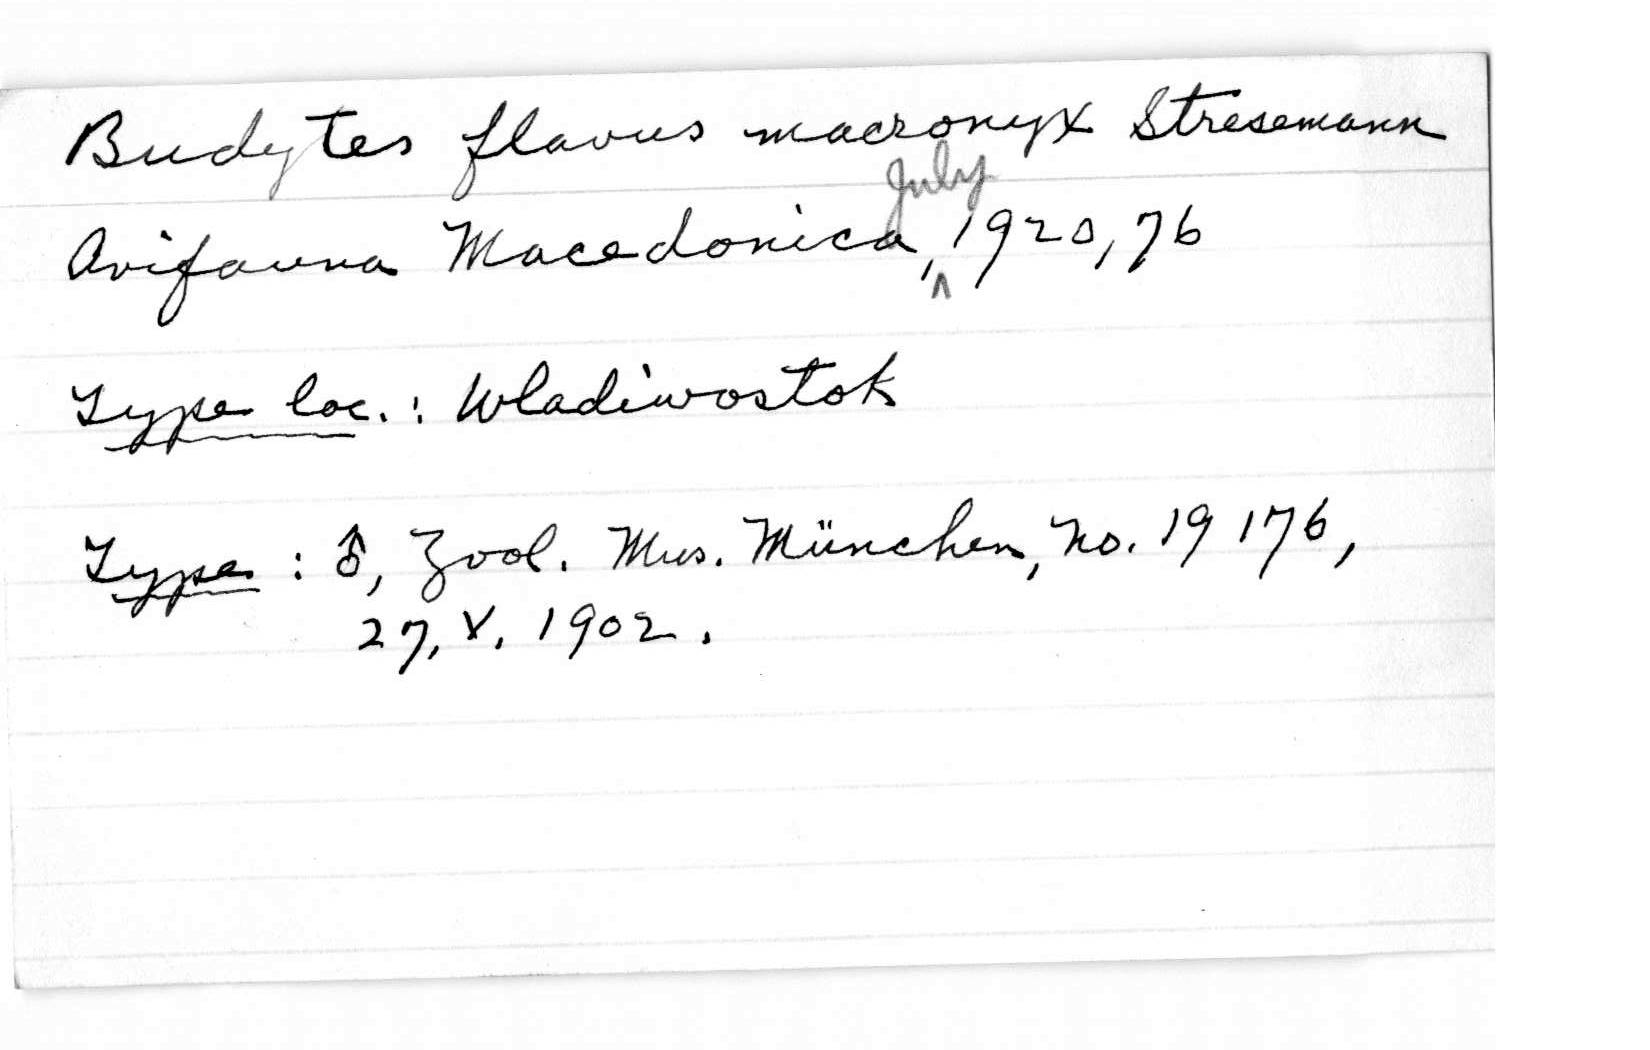 Budytes flavus macronyx Stresemann
Avifauna Macedonica, July 1920, 76
Type loc.: Wladiwostok
Type : ♂, Zool. Mus. München, No. 19 176,
27, V. 1902.